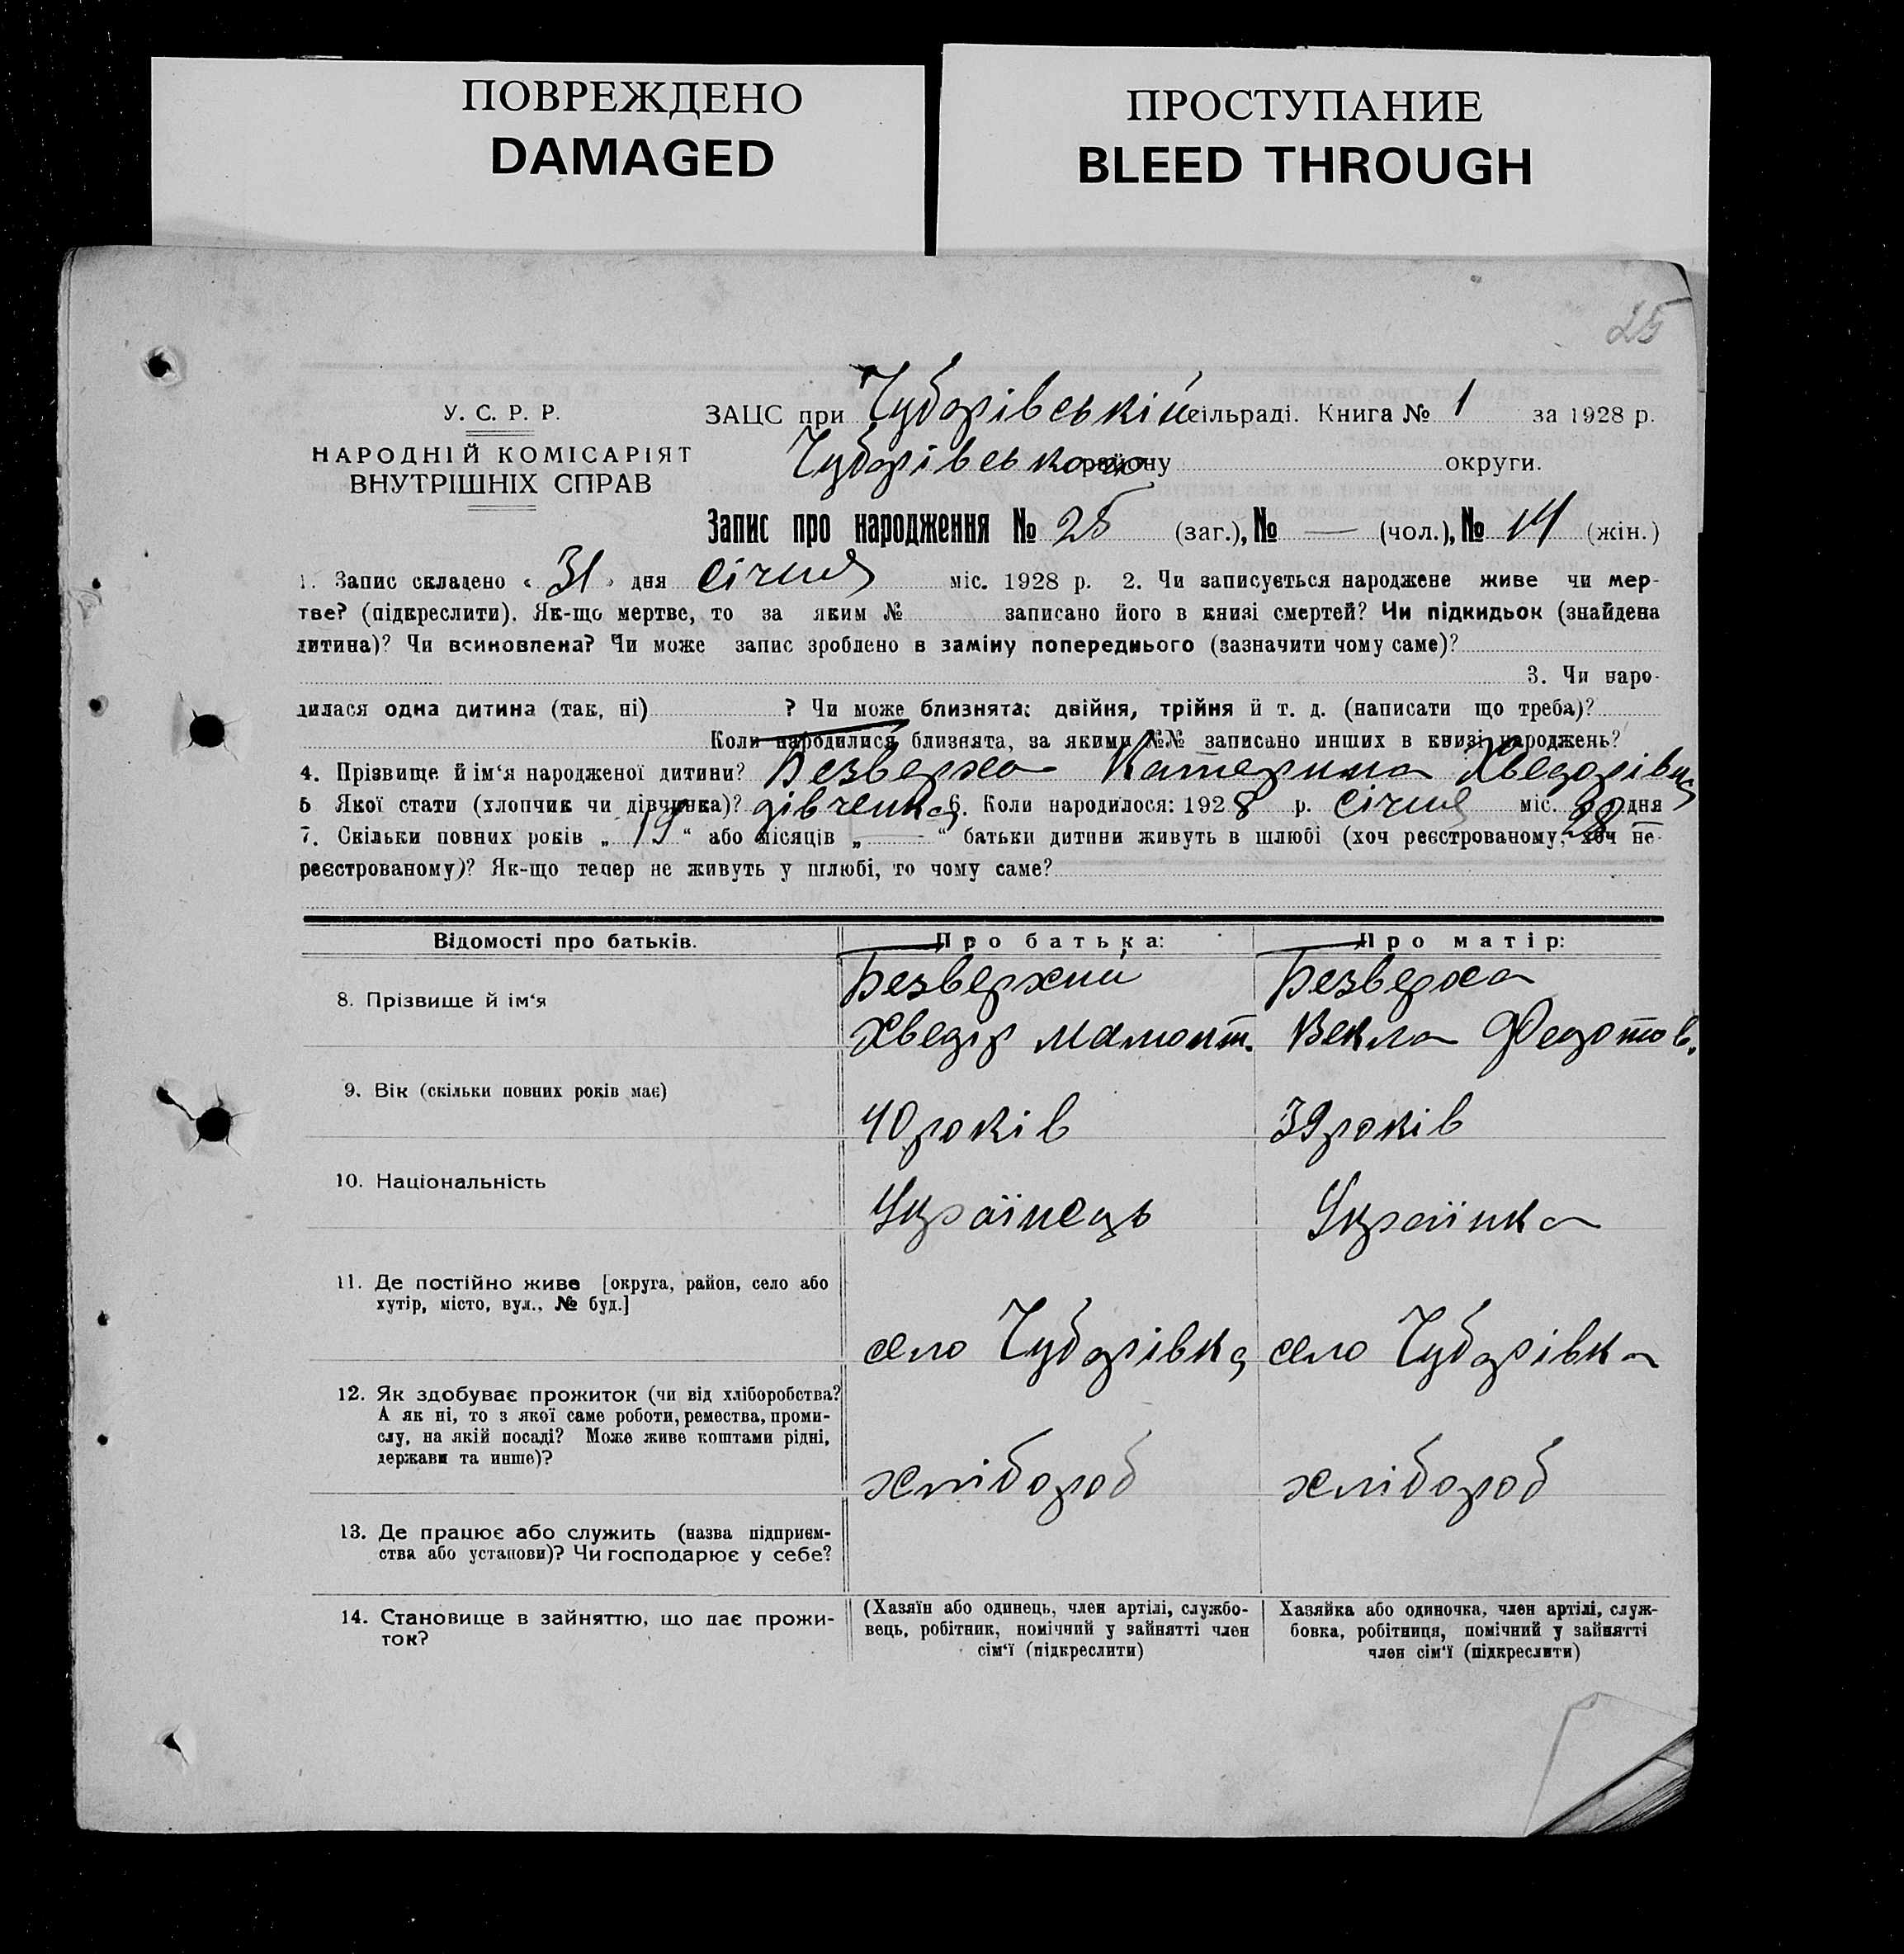 ПОВРЕЖДЕНО
DAMAGED
ПРОСТУПАНИЕ
BLEED THROUGH
25
У. С. Р. Р.
НАРОДНІЙ КОМІСАРІЯТ
ВНУТРІШНІХ СПРАВ
ЗАЦС при Чубарівській сільраді. Книга № 1 за 1928 р.
Чубарівського району округи.
Запис про народження № 25 (заг.), № — (чол.), № 14 (жін.)
1. Запис складено « 31 » дня січня міс. 1928 р. 2. Чи записується народжене живе чи мер-
тве? (підкреслити). Як-що мертве, то за яким № записано його в книзі смертей? Чи підкидьок (знайдена
дитина)? Чи всиновлена? Чи може запис зроблено в заміну попереднього (зазначити чому саме)?
3. Чи наро-
дилася одна дитина (так, ні) ? Чи може близнята: двійня, трійня й т. д. (написати що треба)?
Коли народилися близнята, за якими №№ записано инших в книзі народжень?
4. Прізвище й ім‘я народженої дитини? Безверха Катерина Хведорівна
5 Якої стати (хлопчик чи дівчинка)? дівченка 6. Коли народилося: 1928 р. січня міс. 28 дня
7. Скільки повних років „ 19 “ або місяців „ — “ батьки дитини живуть в шлюбі (хоч реєстрованому, хоч не-
реєстрованому)? Як-що тепер не живуть у шлюбі, то чому саме?
Відомості про батьків. Про батька: Про матір:
8. Прізвище й ім‘я Безверхий Безверха
Хведір Мамонт. Векла Федотов.
9. Вік (скільки повних років має) 40 років 39 років
10. Національність Українець Українка
11. Де постійно живе [округа, район, село або
хутір, місто, вул., № буд.]
село Чубарівка село Чубарівка
12. Як здобуває прожиток (чи від хліборобства?
А як ні, то з якої саме роботи, ремества, проми-
слу, на якій посаді? Може живе коштами рідні,
держави та инше)?
хлібороб хлібороб
13. Де працює або служить (назва підприєм-
ства або установи)? Чи господарює у себе?
14. Становище в зайняттю, що дає прожи-
ток?
(Хазяїн або одинець, член артілі, службо-
вець, робітник, помічний у зайнятті член
сім‘ї (підкреслити)
Хазяйка або одиночка, член артілі, служ-
бовка, робітниця, помічний у зайнятті
член сім‘ї (підкреслити)